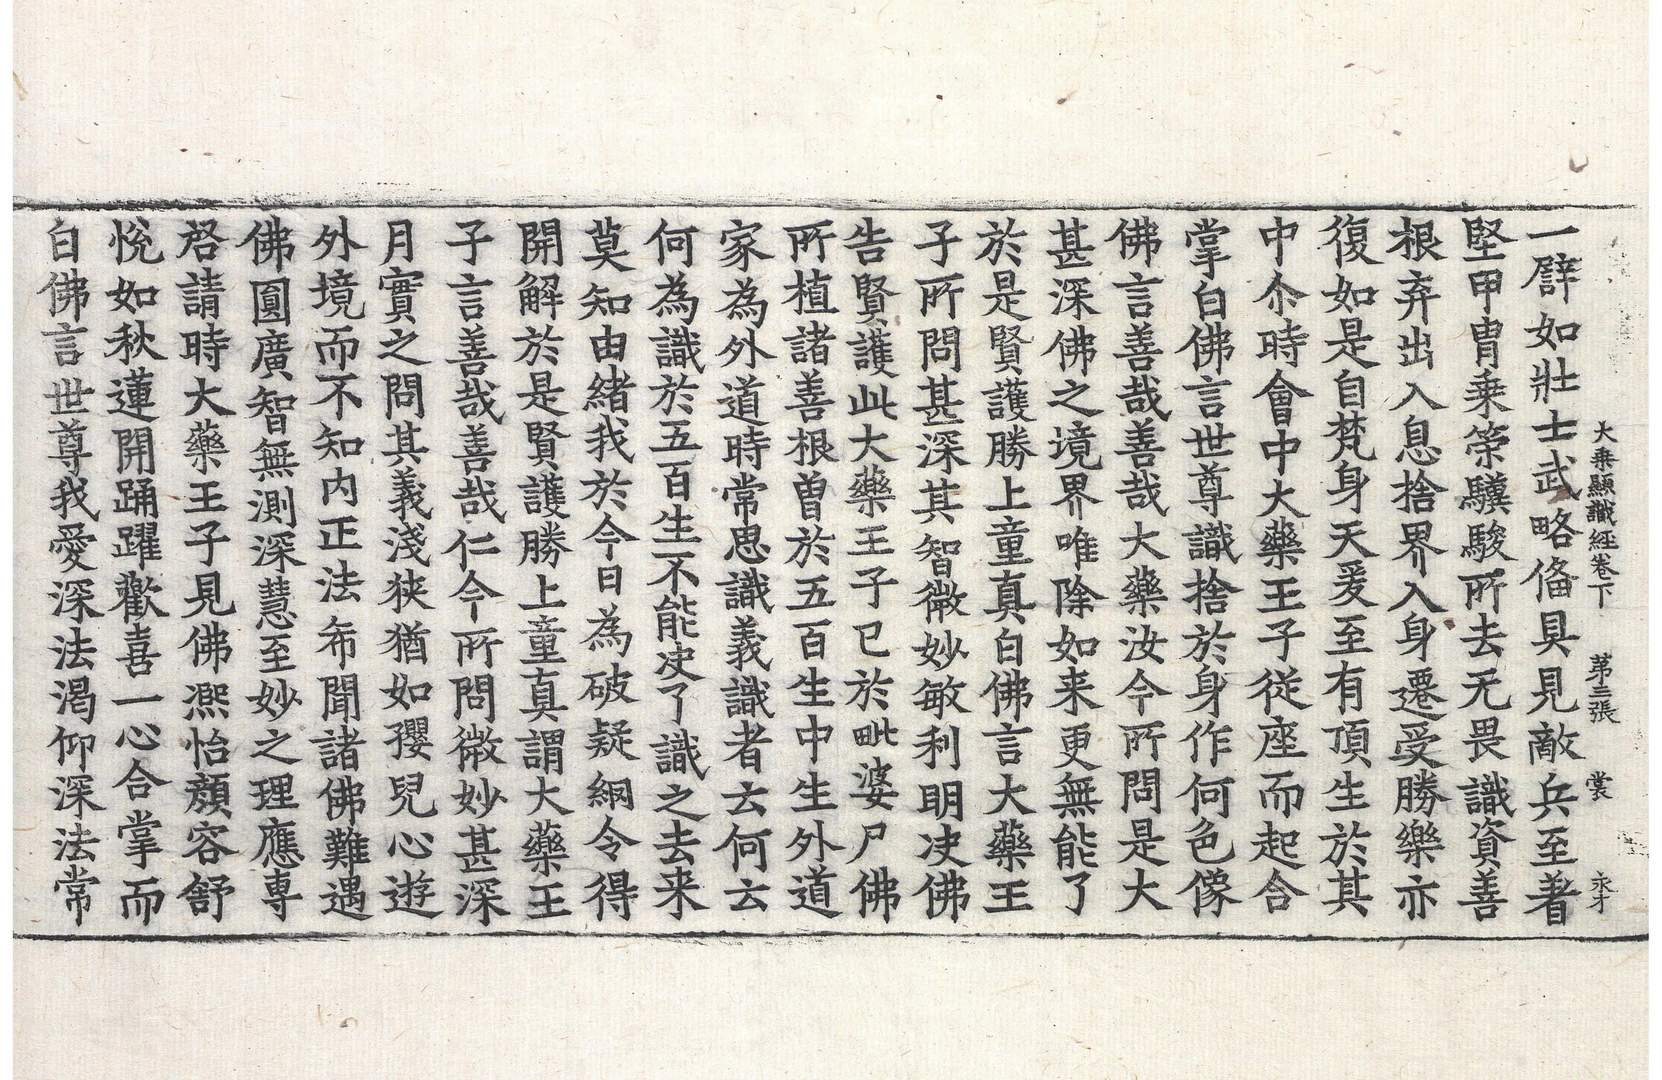 大乗顯識經卷下 第三張 裳 永才
一譬如壯士武略俻具見敵兵至著
堅甲冑乗策驥駿所去无畏識資善
根弃出入息捨界入身遷受勝樂亦
復如是自梵身天爰至有頂生於其
中尒時會中大藥王子從座而起合
掌白佛言世尊識捨於身作何色像
佛言善哉善哉大藥汝今所問是大
甚深佛之境界唯除如来更無能了
於是賢護勝上童真白佛言大藥王
子所問甚深其智微妙敏利明决佛
告賢護此大藥王子已於毗婆尸佛
所植諸善根曽於五百生中生外道
家為外道時常思識義識者云何云
何為識於五百生不能决了識之去来
莫知由緒我於今日為破疑網令得
開解於是賢護勝上童真謂大藥王
子言善哉善哉仁今所問微妙甚深
月實之問其義淺狹猶如孾兒心遊
外境而不知内正法希聞諸佛難遇
佛圓廣智無測深慧至妙之理應専
啓請時大藥王子見佛凞怡顔容舒
悅如秋蓮開踊躍歡喜一心合掌而
白佛言世尊我愛深法渴仰深法常